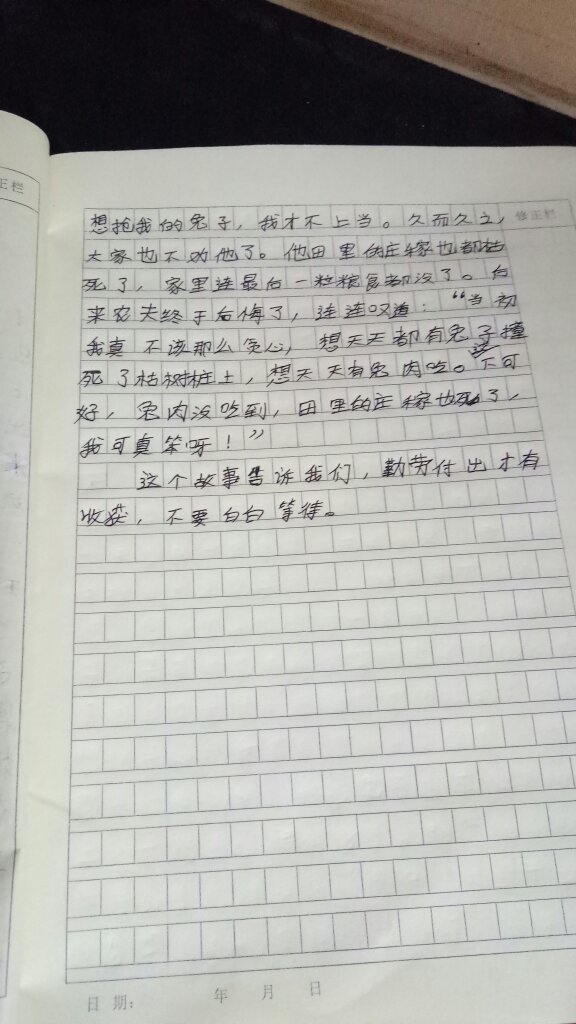 正栏
修正栏
想抢我的兔子，我才不上当。久而久之，
大家也不劝他了。他田里的庄稼也都枯
死了，家里连最后一粒粮食都没了。后
来农夫终于后悔了，连连叹道：“当初
我真不该那么贪心，想天天都有兔子撞
死了枯树桩上，想天天有兔肉吃。这下可
好，兔肉没吃到，田里的庄稼也死了，
我可真笨呀！”
这个故事告诉我们，勤劳付出才有
收获，不要白白等待。
日期： 年 月 日